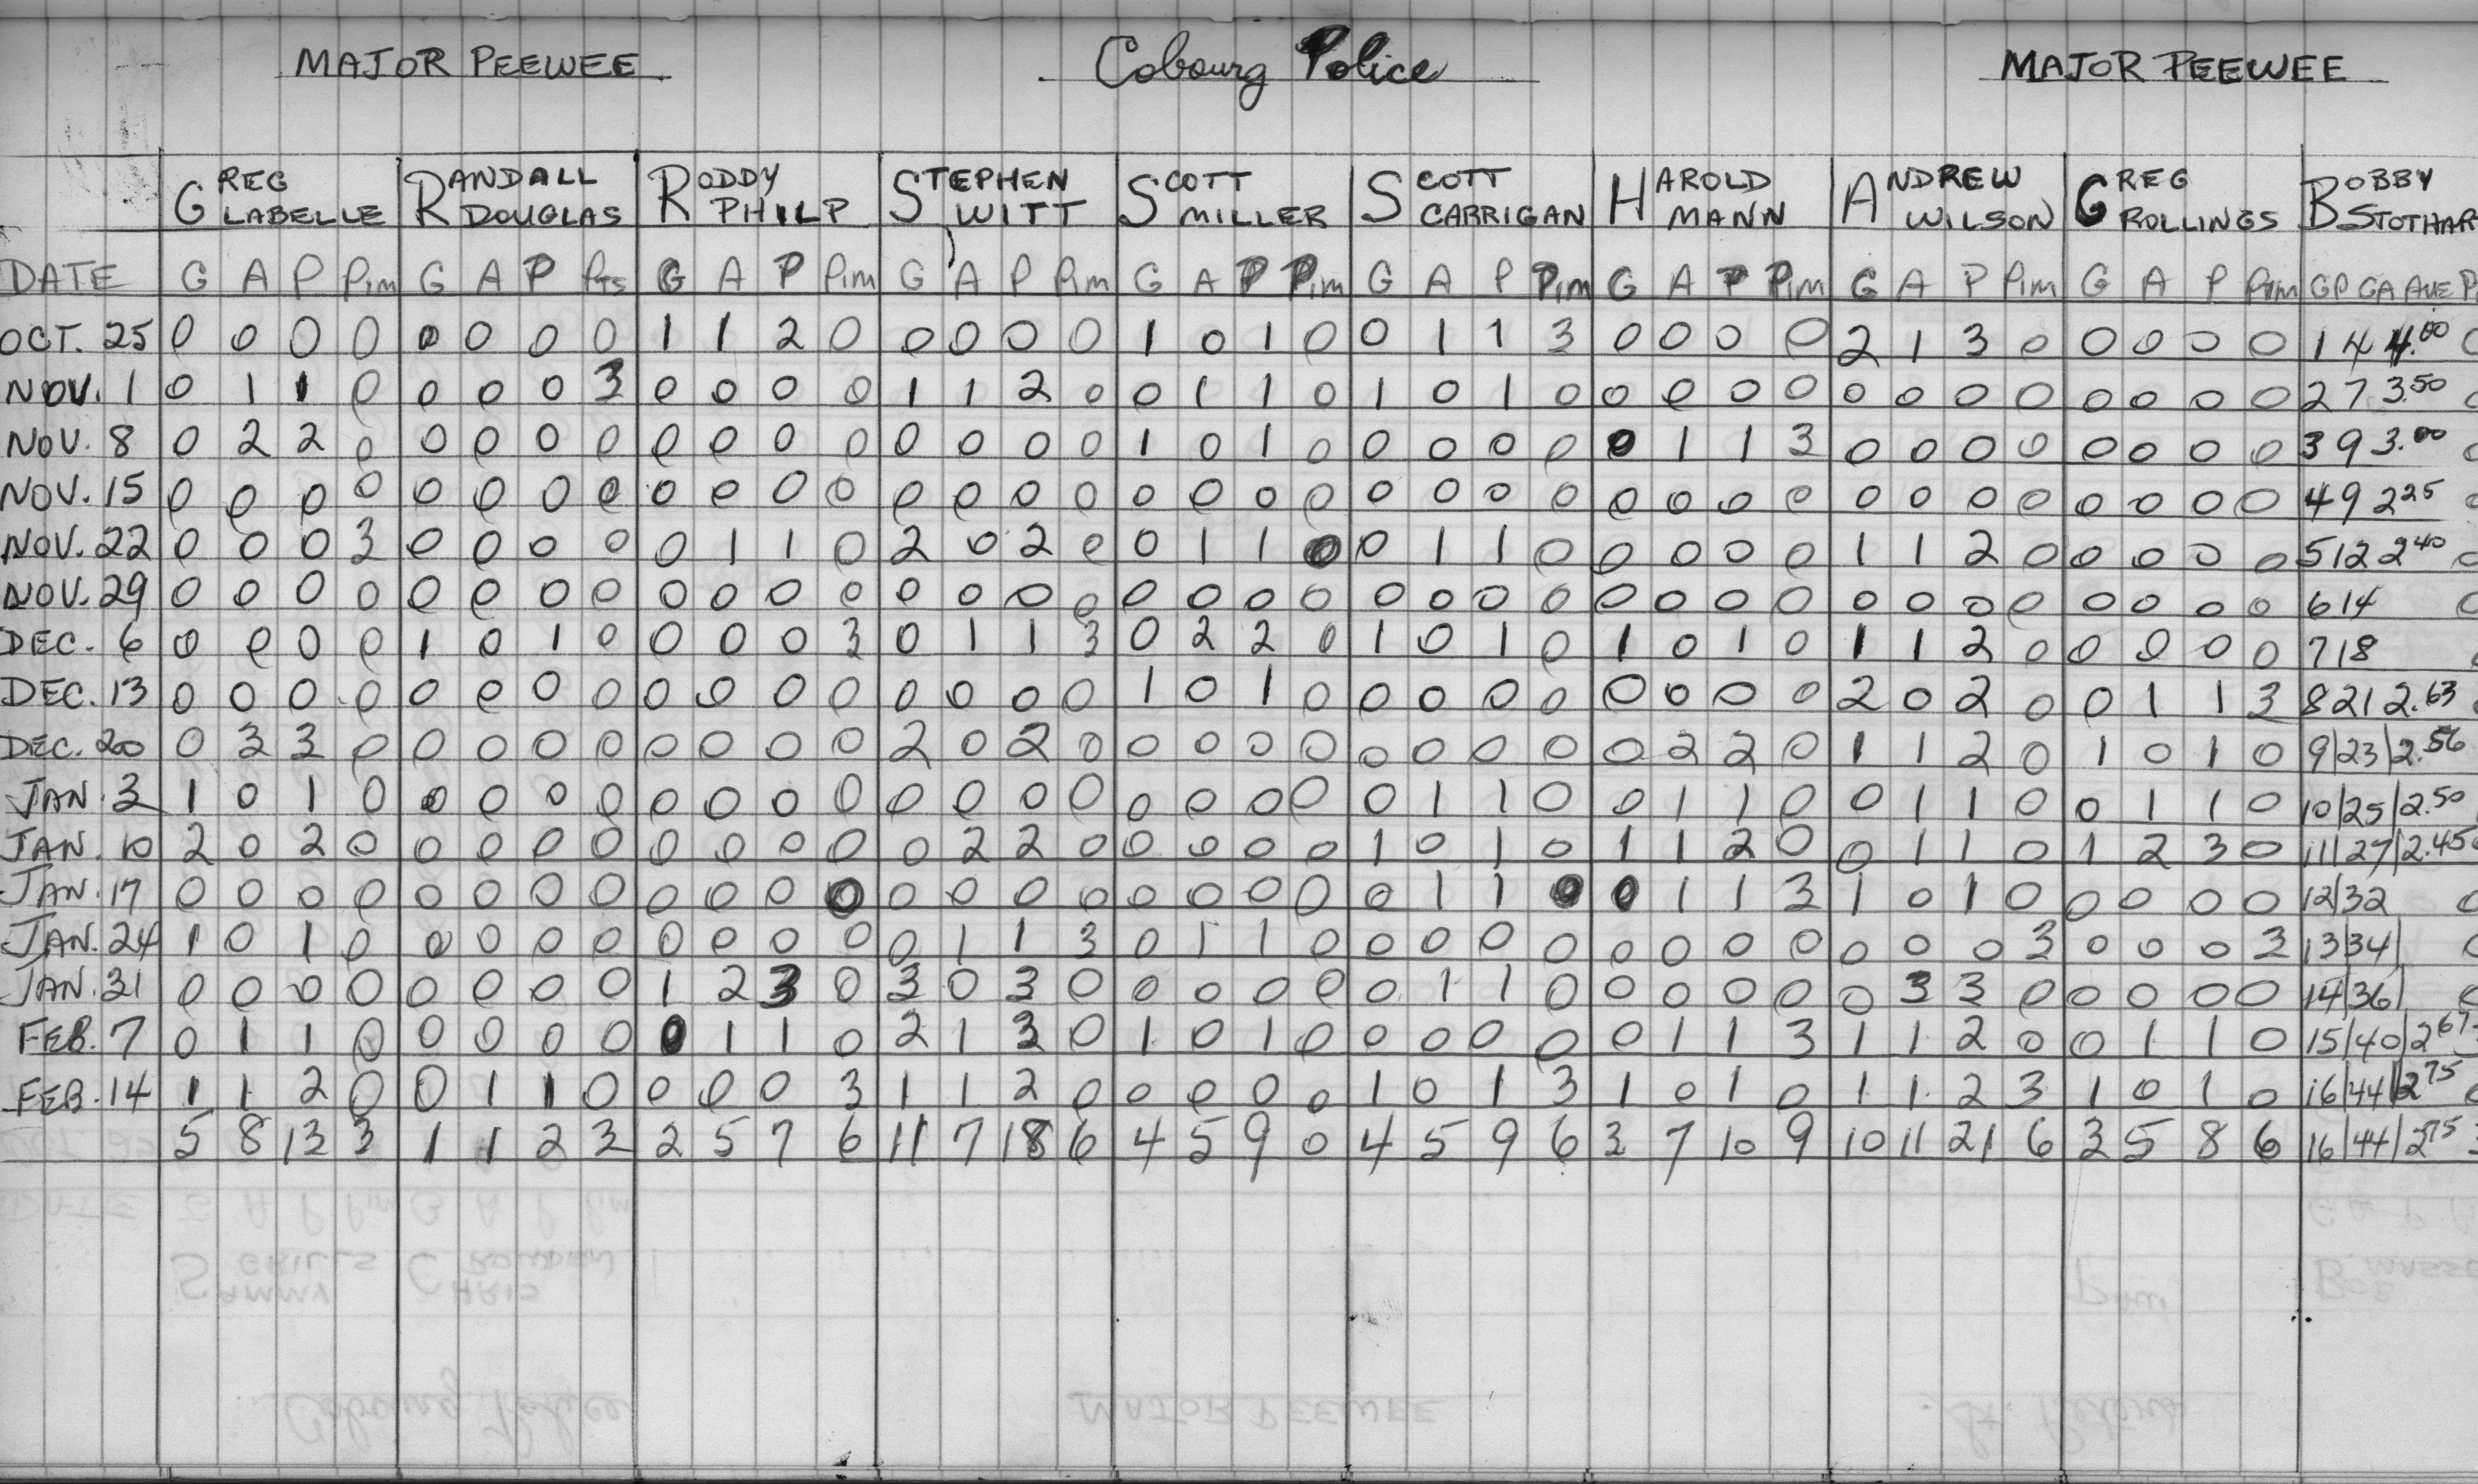 MAJOR PEEWEE Cobourg Police MAJOR PEEWEE
GREG LABELLE RANDALL DOUGLAS RODDY PHILP STEPHEN WITT SCOTT MILLER SCOTT CARRIGAN HAROLD MANN ANDREW WILSON GREG ROLLINGS BOBBY STOTHAR
DATE G A P Pim G A P Pts G A P Pim G A P Pim G A P Pim G A P Pim G A P Pim G A P Pim G A P Pim GP GA AVE P
OCT. 25 0 0 0 0 0 0 0 0 1 1 2 0 0 0 0 0 1 0 1 0 0 1 1 3 0 0 0 0 2 1 3 0 0 0 0 0 1 4 4.00 0
NOV. 1 0 1 1 0 0 0 0 3 0 0 0 0 1 1 2 0 0 1 1 0 1 0 1 0 0 0 0 0 0 0 0 0 0 0 0 0 2 7 3.50 0
NOV. 8 0 2 2 0 0 0 0 0 0 0 0 0 0 0 0 0 1 0 1 0 0 0 0 0 0 1 1 3 0 0 0 0 0 0 0 0 3 9 3.00 0
NOV. 15 0 0 0 0 0 0 0 0 0 0 0 0 0 0 0 0 0 0 0 0 0 0 0 0 0 0 0 0 0 0 0 0 0 0 0 0 4 9 2 25 0
NOV. 22 0 0 0 3 0 0 0 0 0 1 1 0 2 0 2 0 0 1 1 0 0 1 1 0 0 0 0 0 1 1 2 0 0 0 0 0 5 12 2 40 0
NOV. 29 0 0 0 0 0 0 0 0 0 0 0 0 0 0 0 0 0 0 0 0 0 0 0 0 0 0 0 0 0 0 0 0 0 0 0 0 6 14 0
DEC. 6 0 0 0 0 1 0 1 0 0 0 0 3 0 1 1 3 0 2 2 0 1 0 1 0 1 0 1 0 1 1 2 0 0 0 0 0 7 18
DEC. 13 0 0 0 0 0 0 0 0 0 0 0 0 0 0 0 0 1 0 1 0 0 0 0 0 0 0 0 0 2 0 2 0 0 1 1 3 8 21 2.63
DEC. 20 0 3 3 0 0 0 0 0 0 0 0 0 2 0 2 0 0 0 0 0 0 0 0 0 0 2 2 0 1 1 2 0 1 0 1 0 9|23|2.56
JAN. 3 1 0 1 0 0 0 0 0 0 0 0 0 0 0 0 0 0 0 0 0 0 1 1 0 0 1 1 0 0 1 1 0 0 1 1 0 10|25|2.50
JAN. 10 2 0 2 0 0 0 0 0 0 0 0 0 0 2 2 0 0 0 0 0 1 0 1 0 1 1 2 0 0 1 1 0 1 2 3 0 11|27|2.45 0
JAN. 17 0 0 0 0 0 0 0 0 0 0 0 0 0 0 0 0 0 0 0 0 0 1 1 0 0 1 1 3 1 0 1 0 0 0 0 0 12|32 0
JAN. 24 1 0 1 0 0 0 0 0 0 0 0 0 0 1 1 3 0 1 1 0 0 0 0 0 0 0 0 0 0 0 0 3 0 0 0 3 13|34| 0
JAN. 31 0 0 0 0 0 0 0 0 1 2 3 0 3 0 3 0 0 0 0 0 0 1 1 0 0 0 0 0 0 3 3 0 0 0 0 0 14|36| 0
FEB. 7 0 1 1 0 0 0 0 0 0 1 1 0 2 1 3 0 1 0 1 0 0 0 0 0 0 1 1 3 1 1 2 0 0 1 1 0 15|40|2 67
FEB. 14 1 1 2 0 0 1 1 0 0 0 0 3 1 1 2 0 0 0 0 0 1 0 1 3 1 0 1 0 1 1 2 3 1 0 1 0 16|44|2 75 0
5 8 13 3 1 1 2 3 2 5 7 6 11 7 18 6 4 5 9 0 4 5 9 6 3 7 10 9 10 11 21 6 3 5 8 6 16|44|2 75